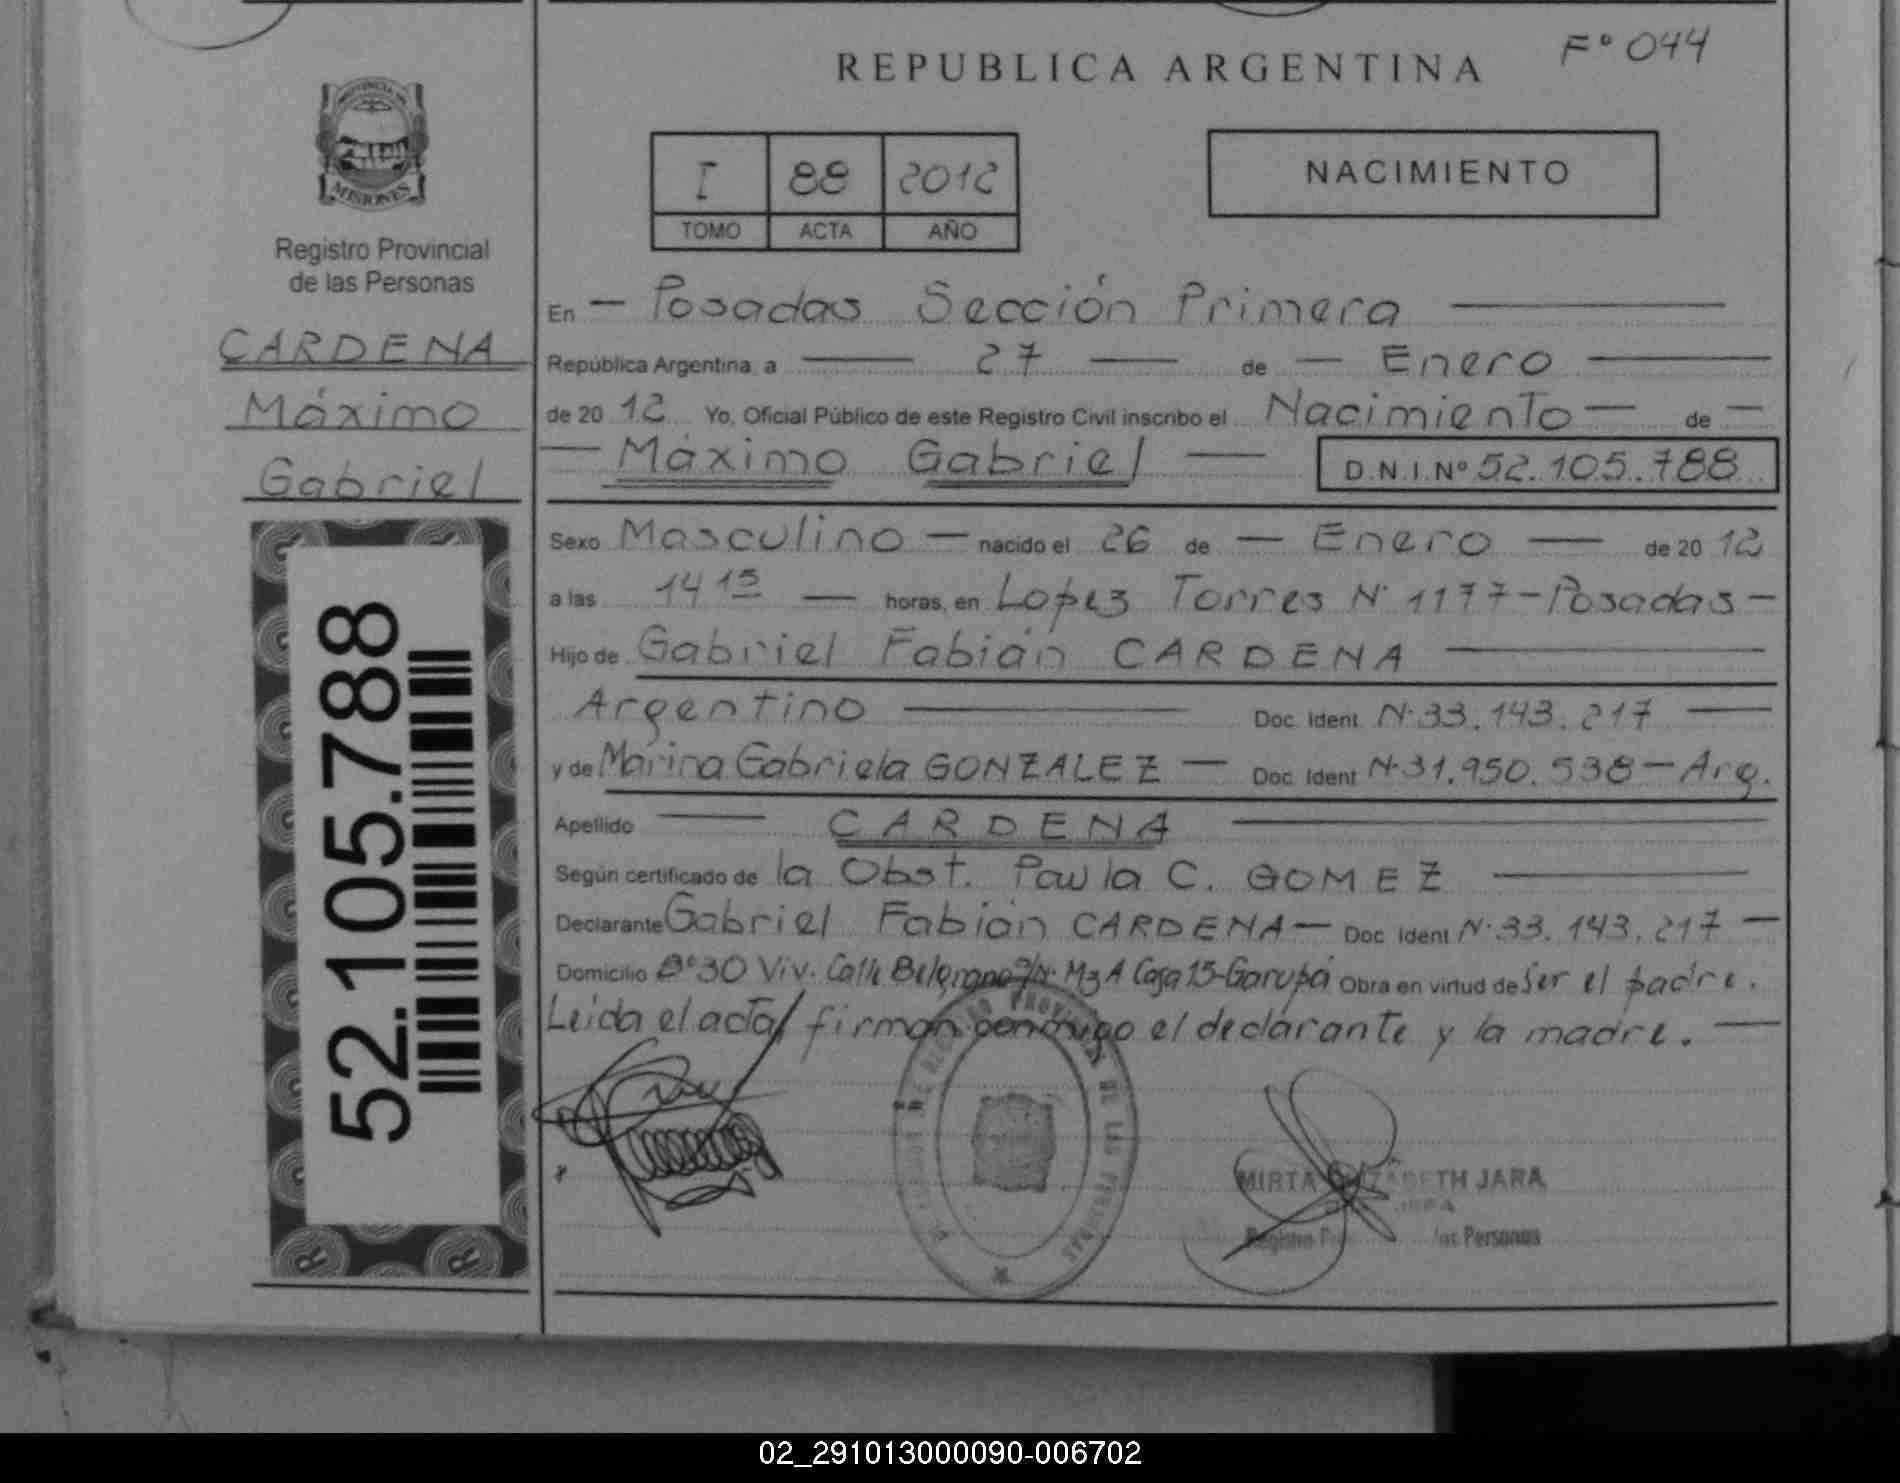 F° 044
REPUBLICA ARGENTINA
PROVINCIA DE
MISIONES
Registro Provincial
de las Personas
CARDENA
Máximo
Gabriel
52.105.788
I 88 2012
TOMO ACTA AÑO
NACIMIENTO
En — Posadas Sección Primera —
República Argentina, a — 27 — de — Enero —
de 20 12 Yo, Oficial Público de este Registro Civil inscribo el Nacimiento — de —
— Máximo Gabriel — D.N.I. Nº 52.105.788
Sexo Masculino — nacido el 26 de — Enero — de 20 12
a las 14 15 — horas, en Lopez Torres N° 1177 - Posadas —
Hijo de Gabriel Fabián CARDENA —
Argentino — Doc. Ident. N° 33.143.217 —
y de Marina Gabriela GONZALEZ — Doc. Ident. N° 31.950.538 — Arg.
Apellido — CARDENA —
Según certificado de la Obst. Paula C. GOMEZ —
Declarante Gabriel Fabián CARDENA — Doc. Ident. N° 33.143.217 —
Domicilio B° 30 Viv. Calle Belgrano S/N° Mz A Casa 15 - Garupá Obra en virtud de Ser el padre.
Leida el acta, firman conmigo el declarante y la madre. —
MIRTA ELIZABETH JARA
Registro las Personas
02_291013000090-006702